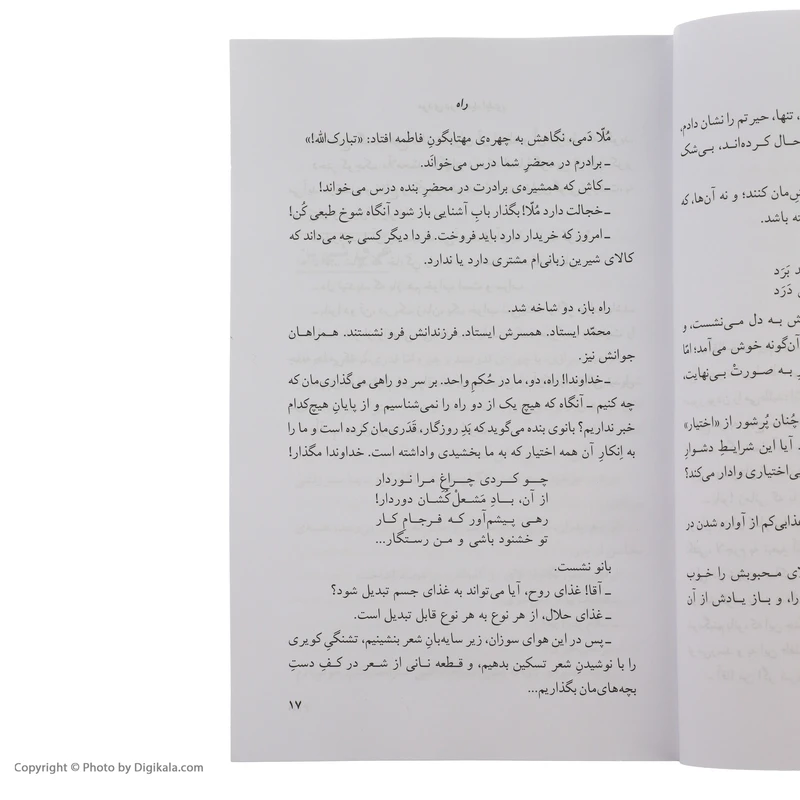 راه
مُلّا دَمی، نگاهش به چهره‌ی مهتابگونِ فاطمه افتاد: «تبارک‌الله!»
ـ برادرم در محضرِ شما درس می‌خوانَد.
ـ کاش که همشیره‌ی برادرت در محضرِ بنده درس می‌خواند!
ـ خجالت دارد مُلّا! بگذار بابِ آشنایی باز شود آنگاه شوخ طبعی کُن!
ـ امروز که خریدار دارد باید فروخت. فردا دیگر کسی چه می‌داند که
کالای شیرین زبانی‌ام مشتری دارد یا ندارد.
راه باز، دو شاخه شد.
محمّد ایستاد. همسرش ایستاد. فرزندانش فرو نشستند. همراهان
جوانش نیز.
ـ خداوندا! راه، دو، ما در حُکمِ واحد. بر سر دو راهی می‌گذاری‌مان که
چه کنیم ـ آنگاه که هیچ یک از دو راه را نمی‌شناسیم و از پایانِ هیچ‌کدام
خبر نداریم؟ بانوی بنده می‌گوید که بَدِ روزگار، قَدَری‌مان کرده است و ما را
به اِنکارِ آن همه اختیار که به ما بخشیدی واداشته است. خداوندا مگذار!
چو کردی چراغِ مرا نوردار
از آن، بادِ مَشعلْ‌کُشان دوردار!
رهی پیشم‌آور که فرجامِ کار
تو خشنود باشی و من رستگار...
بانو نشست.
ـ آقا! غذای روح، آیا می‌تواند به غذای جسم تبدیل شود؟
ـ غذای حلال، از هر نوع به هر نوع قابل تبدیل است.
ـ پس در این هوای سوزان، زیر سایه‌بانِ شعر بنشینیم، تشنگیِ کویری
را با نوشیدنِ شعر تسکین بدهیم، و قطعه نانی از شعر در کفِ دستِ
بچه‌های‌مان بگذاریم...
۱۷
تنها، حیرتم را نشان دادم.
حال کرده‌اند، بی‌شک
مان کنند؛ و نه آن‌ها، که
باشد.
بَرَد
دَرَد
به دل می‌نشست، و
آن‌گونه خوش می‌آمد؛ امّا
به صورتْ بی‌نهایت،
چُنان پُرشور از «اختیار»
آیا این شرایطِ دشوارِ
اختیاری وادار می‌کند؟
کم از آواره شدن در
محبوبش را خوب
را، و باز یادش از آن
Copyright © Photo by Digikala.com